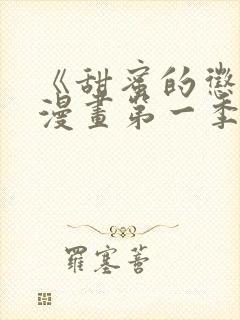 《甜蜜的懲
漫畫第一季
羅塞菩